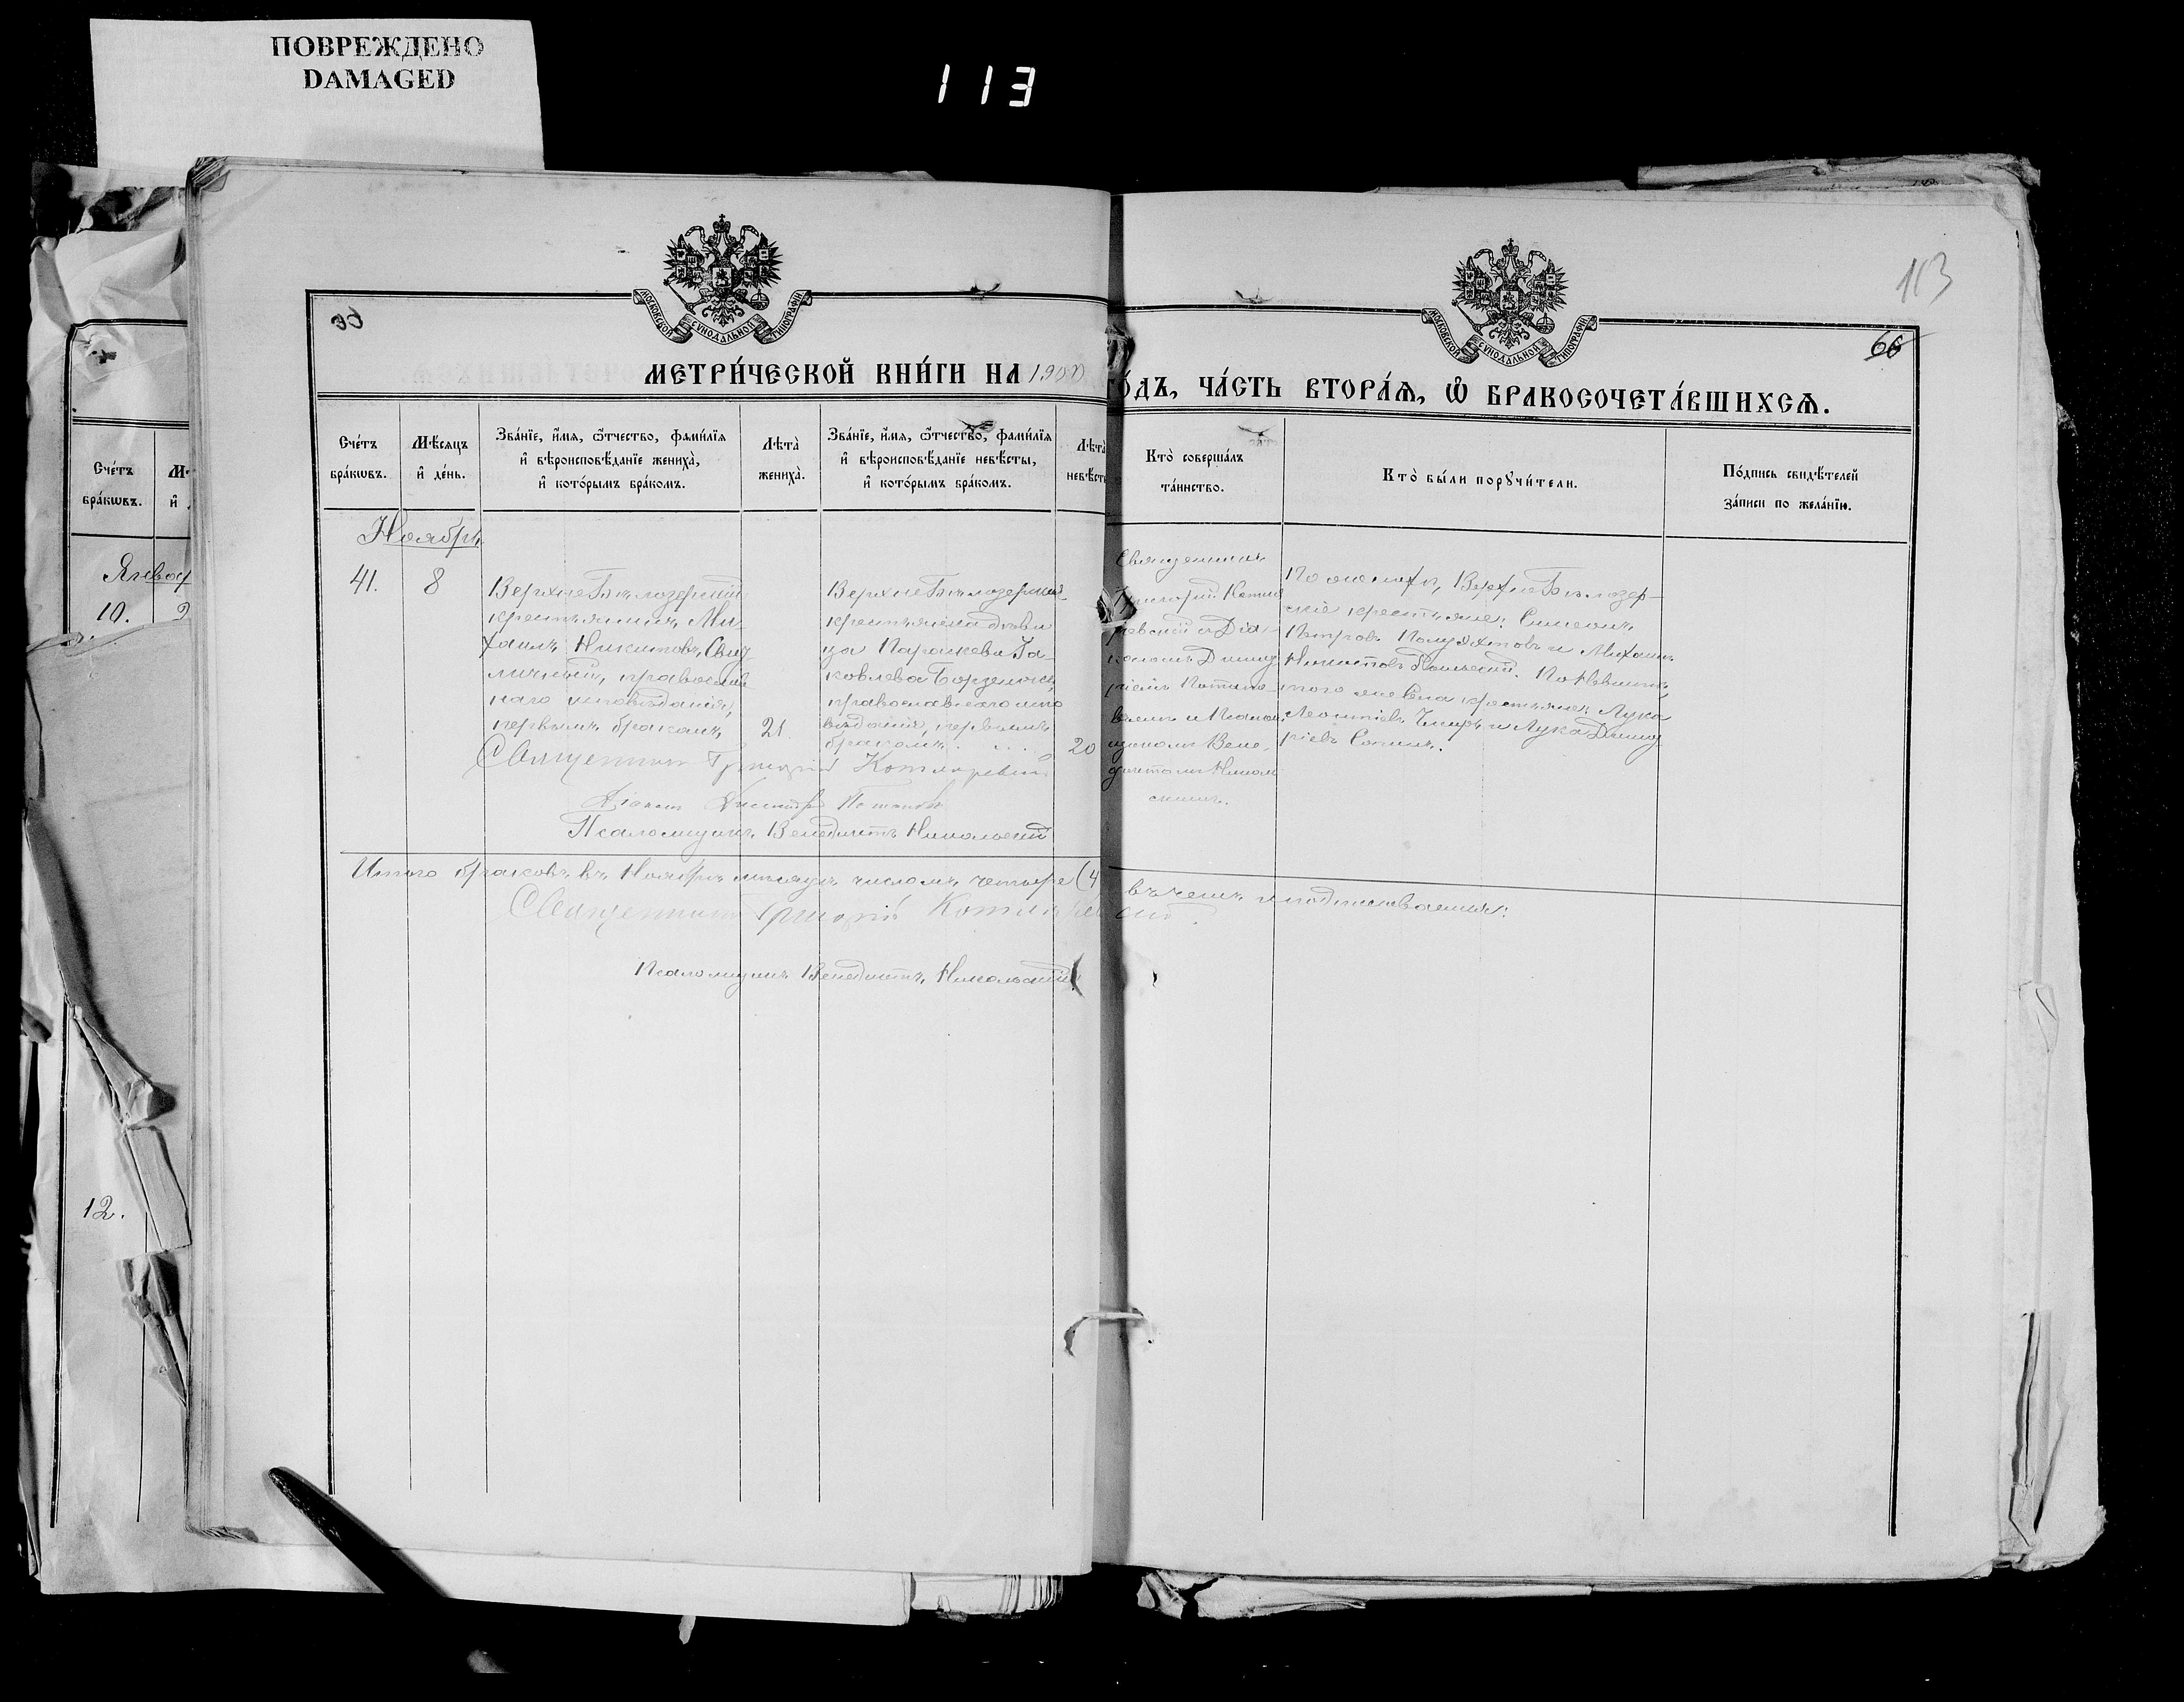 ПОВРЕЖДЕНО
DAMAGED
113
113
66
МОСКОВСКОЙ СѴНОДАЛЬНОЙ ТИПОГРАФІИ
МОСКОВСКОЙ СѴНОДАЛЬНОЙ ТИПОГРАФІИ
МЕТРИ́ЧЕСКОЙ КНИ́ГИ НА 1900 ГО́ДЪ, ЧА́СТЬ ВТОРА́Ѧ, Ѿ БРАКОСОЧЕТА́ВШИХСѦ.
Сче́тъ бра́кѡвъ.
Мѣ́сяцъ и҆ де́нь.
Зва́нїе, и҆́мя, ѻ҆́тчество, фами́лїя
и҆ вѣроисповѣ́данїе жениха̀,
и҆ кото́рымъ бра́комъ.
Лѣ́та жениха̀.
Зва́нїе, и҆́мя, ѻ҆́тчество, фами́лїя
и҆ вѣроисповѣ́данїе невѣ́сты,
и҆ кото́рымъ бра́комъ.
Лѣ́та невѣ́сты
Кто̀ соверша́лъ
та́инство.
Кто̀ бы́ли порꙋчи́тели.
По́дпись свидѣ́телей
за́писи по жела́нїю.
Ноябрь
41.
8
ВерхнеБѣлозерскій
крестьянинъ Ми-
хаилъ Никитовъ
православ
наго исповѣданія,
первымъ бракомъ,
21.
ВерхнеБѣлозерская
крестьянка дѣви
ца Параскева Іа-
ковлева
православнаго испо
вѣданія, первымъ
бракомъ.
20
Священникъ
Григорій Котля
ревскій и Діа-
кономъ Дими
тріемъ Потапо-
вымъ и Псалом
щикомъ Вене-
диктомъ Николь
скимъ.
По женихѣ, ВерхнеБѣлозер-
скіе крестьяне: Симеонъ
Петровъ и Михаилъ
Никитовъ. По невѣстѣ,
того же села крестьяне: Лука
Леонтіевъ и Лука Димит
ріевъ
Священникъ Григорій Котляревскій
Діаконъ Димитрій Потаповъ
Псаломщикъ Венедиктъ Никольскій
Итого браковъ въ Ноябрѣ мѣсяцѣ числомъ четыре (4) въ чемъ и подписываемся:
Священникъ Григорій Котляревскій.
Псаломщикъ Венедиктъ Никольскій
Сче́тъ
бра́кѡвъ.
10.
12.